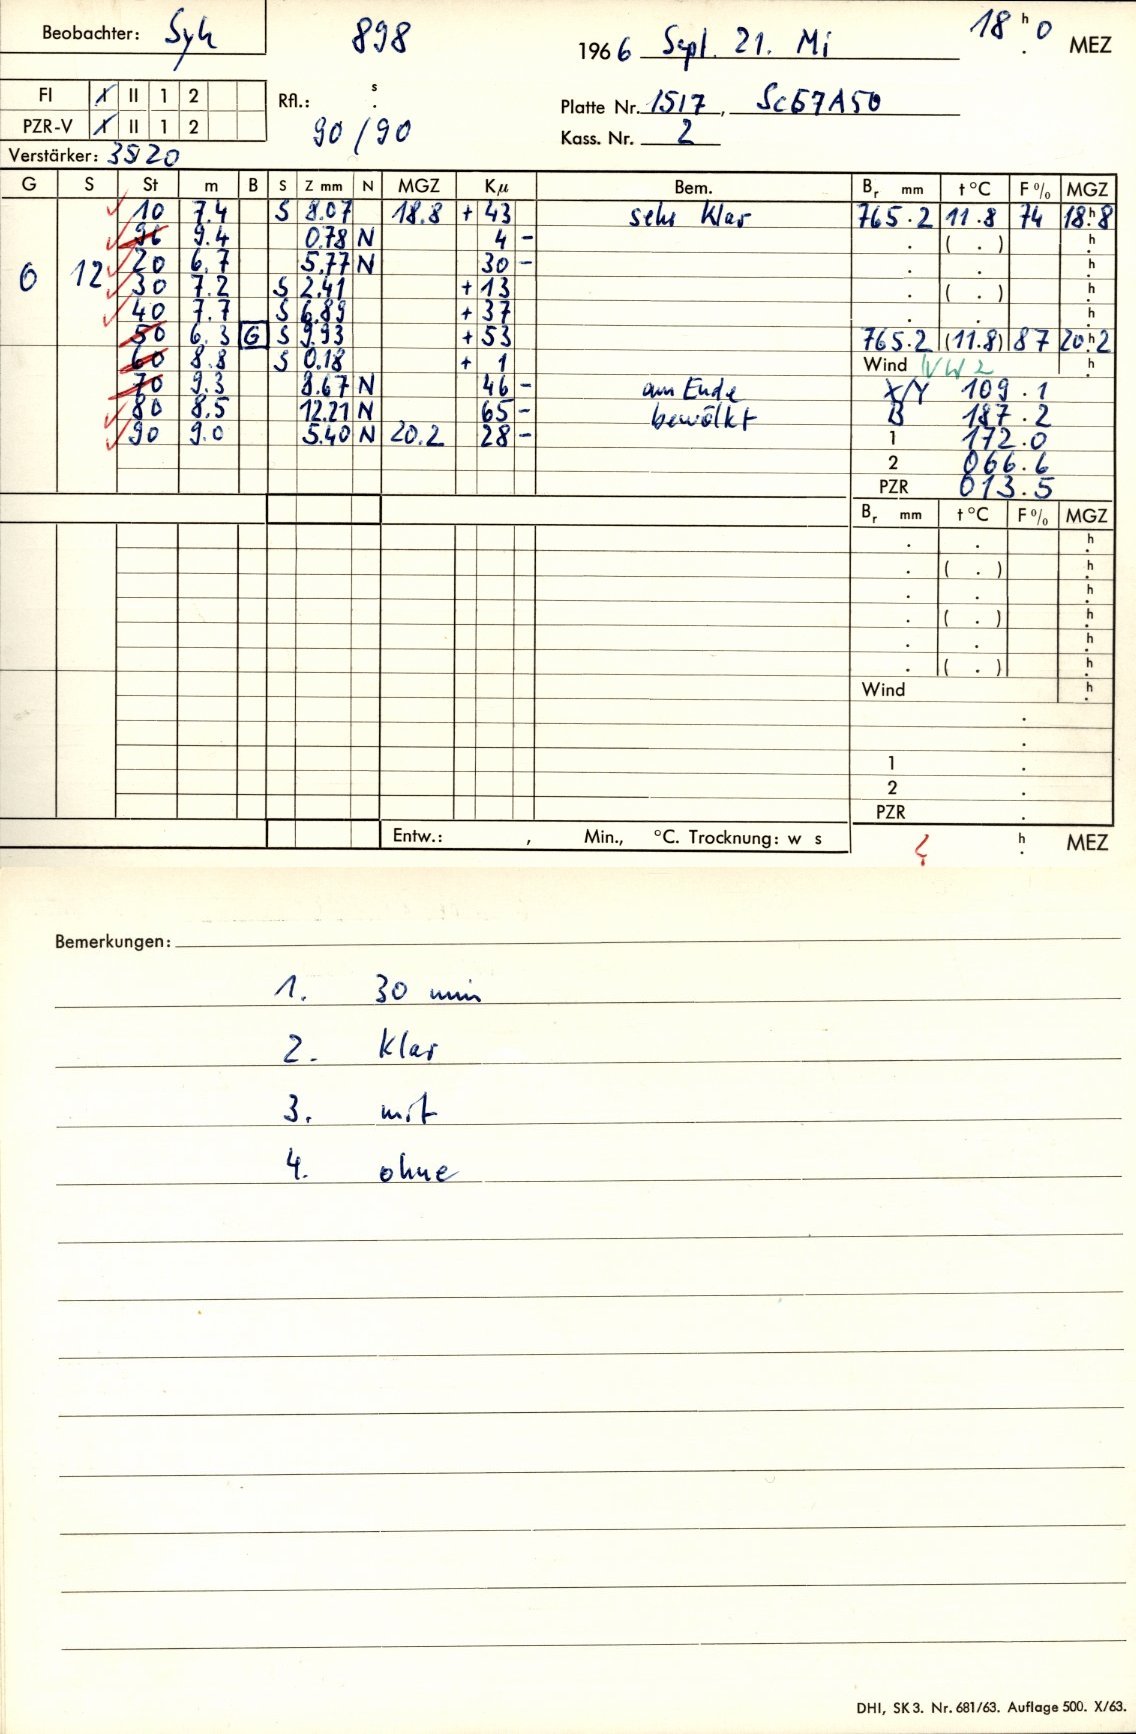 Beobachter: Syh 898 1966 Sept. 21. Mi 18 h 0 MEZ
FI I II 1 2 Rfl.: s Platte Nr. 1517, Sc67A50
PZR-V I II 1 2 90/90 Kass. Nr. 2
Verstärker: 35/20
G S St m B S Z mm N MGZ Kμ Bem. Br mm t °C F % MGZ
10 7.4 S 8.07 18.8 + 43 sehr klar 765.2 11.8 74 18 h 8
9.4 0.78 N 4 - . ( . ) h
20 6.7 5.77 N 30 - . . h
6 12 30 7.2 S 2.41 + 13 . ( . ) h
40 7.7 S 6.89 + 37 . . h
50 6.3 G S 9.93 + 53 765.2 (11.8) 87 20 h 2
60 8.8 S 0.18 + 1 Wind NW 2 h
70 9.3 8.67 N 46 - am Ende X/Y 109.1
80 8.5 12.21 N 65 - bewölkt B 187.2
90 9.0 5.40 N 20.2 28 - 1 172.0
2 066.6
PZR 013.5
Br mm t °C F % MGZ
. . h
. ( . ) h
. . h
. ( . ) h
. . h
. ( . ) h
Wind h
.
.
1 .
2 .
PZR .
Entw.: , Min., °C. Trocknung: w s h MEZ
Bemerkungen:
1. 30 min
2. klar
3. mit
4. ohne
DHI, SK 3. Nr. 681/63. Auflage 500. X/63.